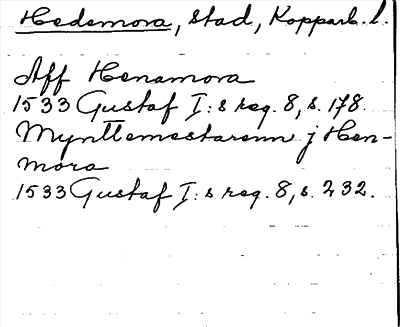 Hedemora, stad, Kopparb. l.
Aff Henamora
1533 Gustaf I:s reg. 8, s. 178.
Mynttemestarenn j Hen-
mora
1533 Gustaf I:s reg. 8, s. 232.